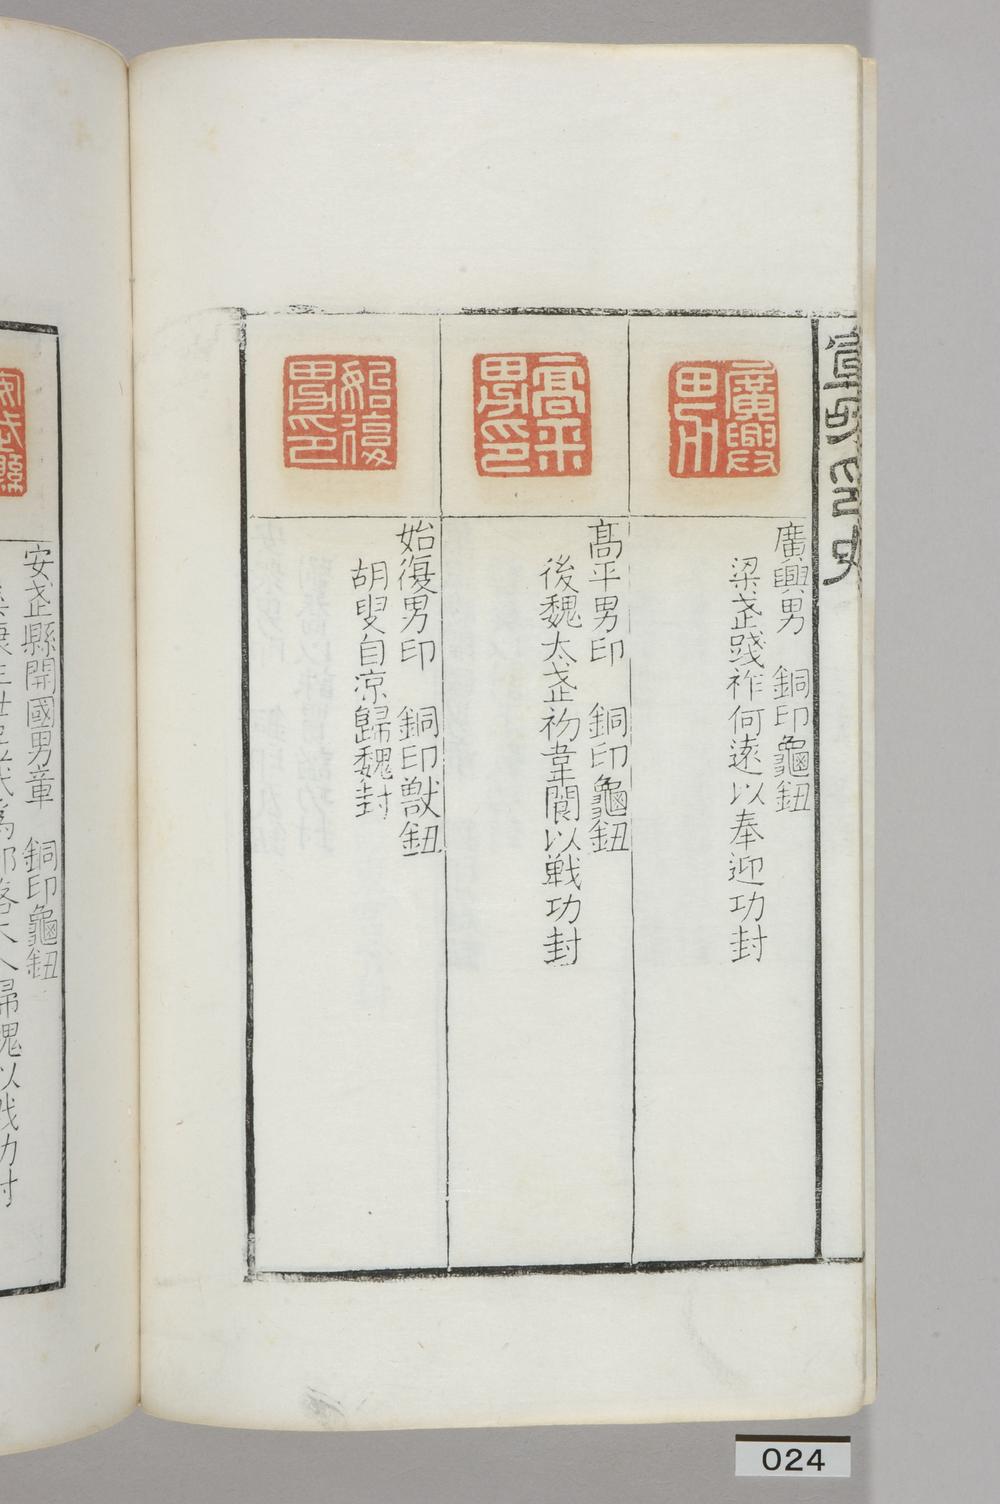 宣和印史
廣興男
廣興男 銅印龜鈕
梁武踐祚何遠以奉迎功封
高平男印
高平男印 銅印龜鈕
後魏太武初韋閬以戰功封
始復男印
始復男印 銅印獸鈕
胡叟自涼歸魏封
安武縣
安武縣開國男章 銅印龜鈕
歸魏以戰功封
024